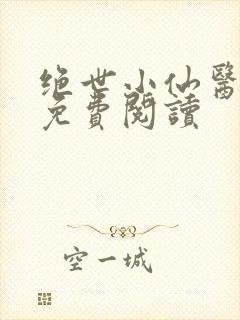 绝世小仙醫
免費閱讀
空一城